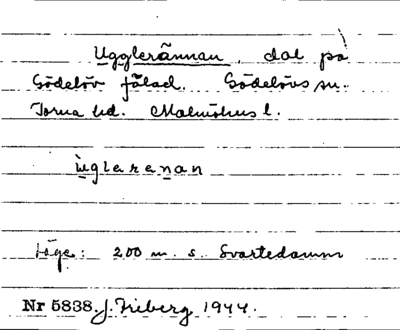 Ugglerännan, dal på
Gödelöv fälad. Gödelövs sn.
Torna hd. Malmöhus l.
ùglarenan
Läge: 200 m. s. Svartedamm
Nr 5838. J. Friberg 1944.